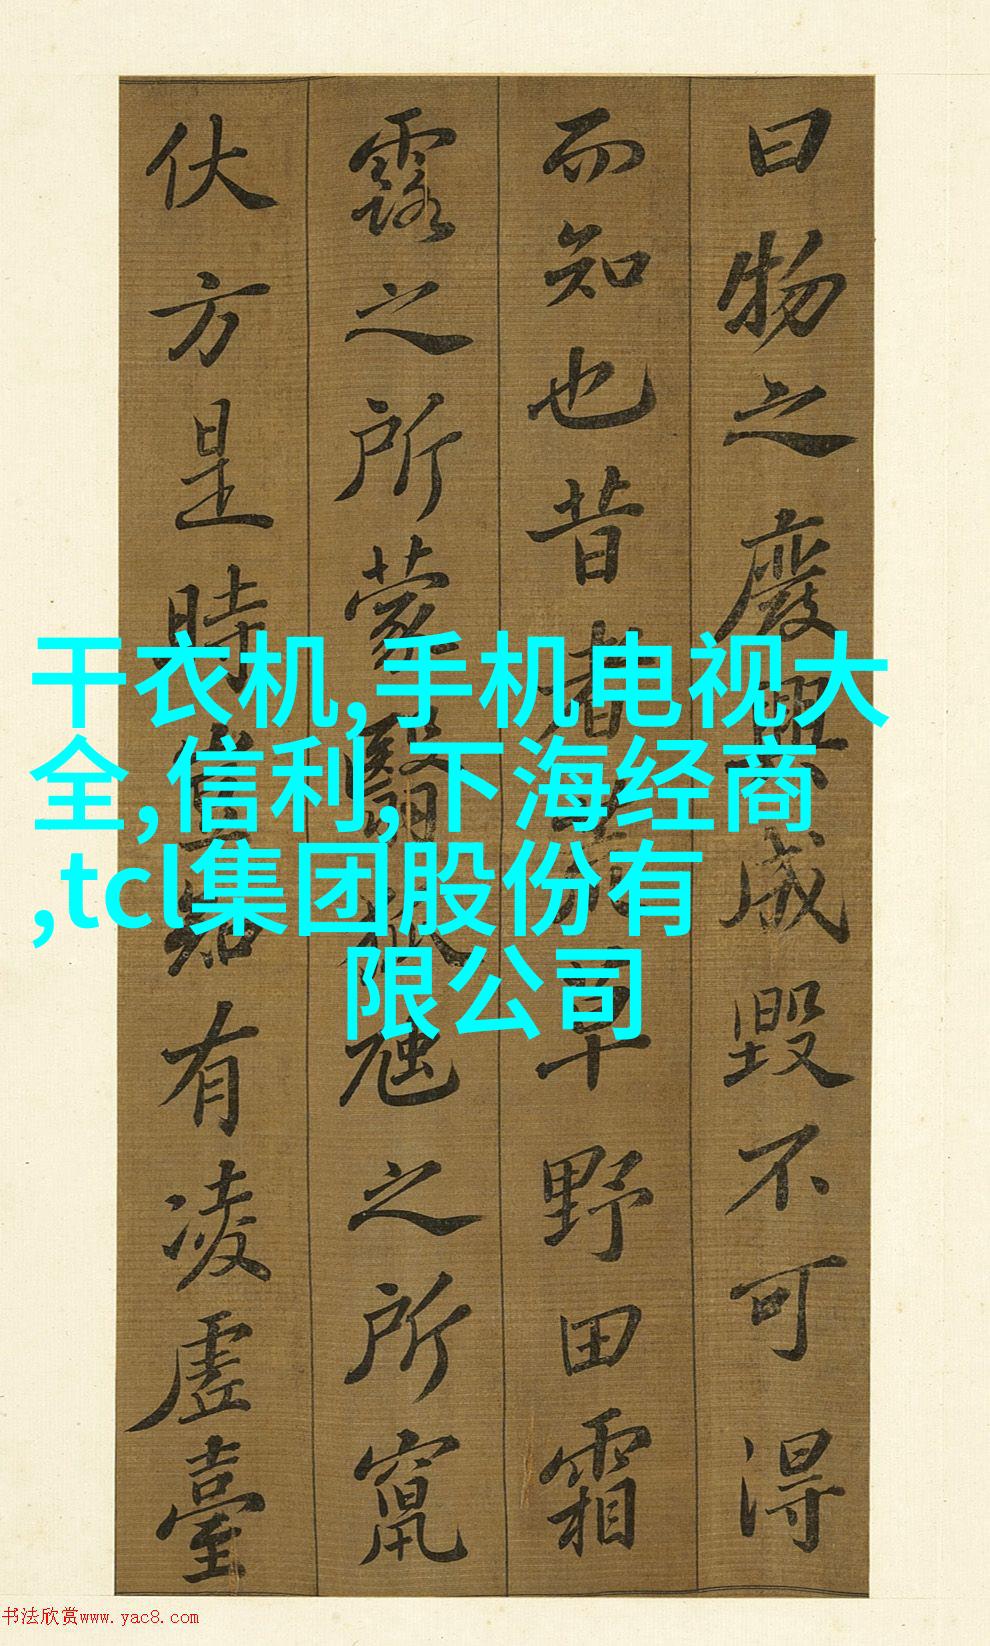 曰物之廢興成毀不可得
而知也昔者荒草野田霜
露之所蒙翳狐虺之所竄
伏方是時豈知有凌虛臺
干衣机,手机电视大
全,信利,下海经商
,tcl集团股份有
限公司
书法欣赏www.yac8.com